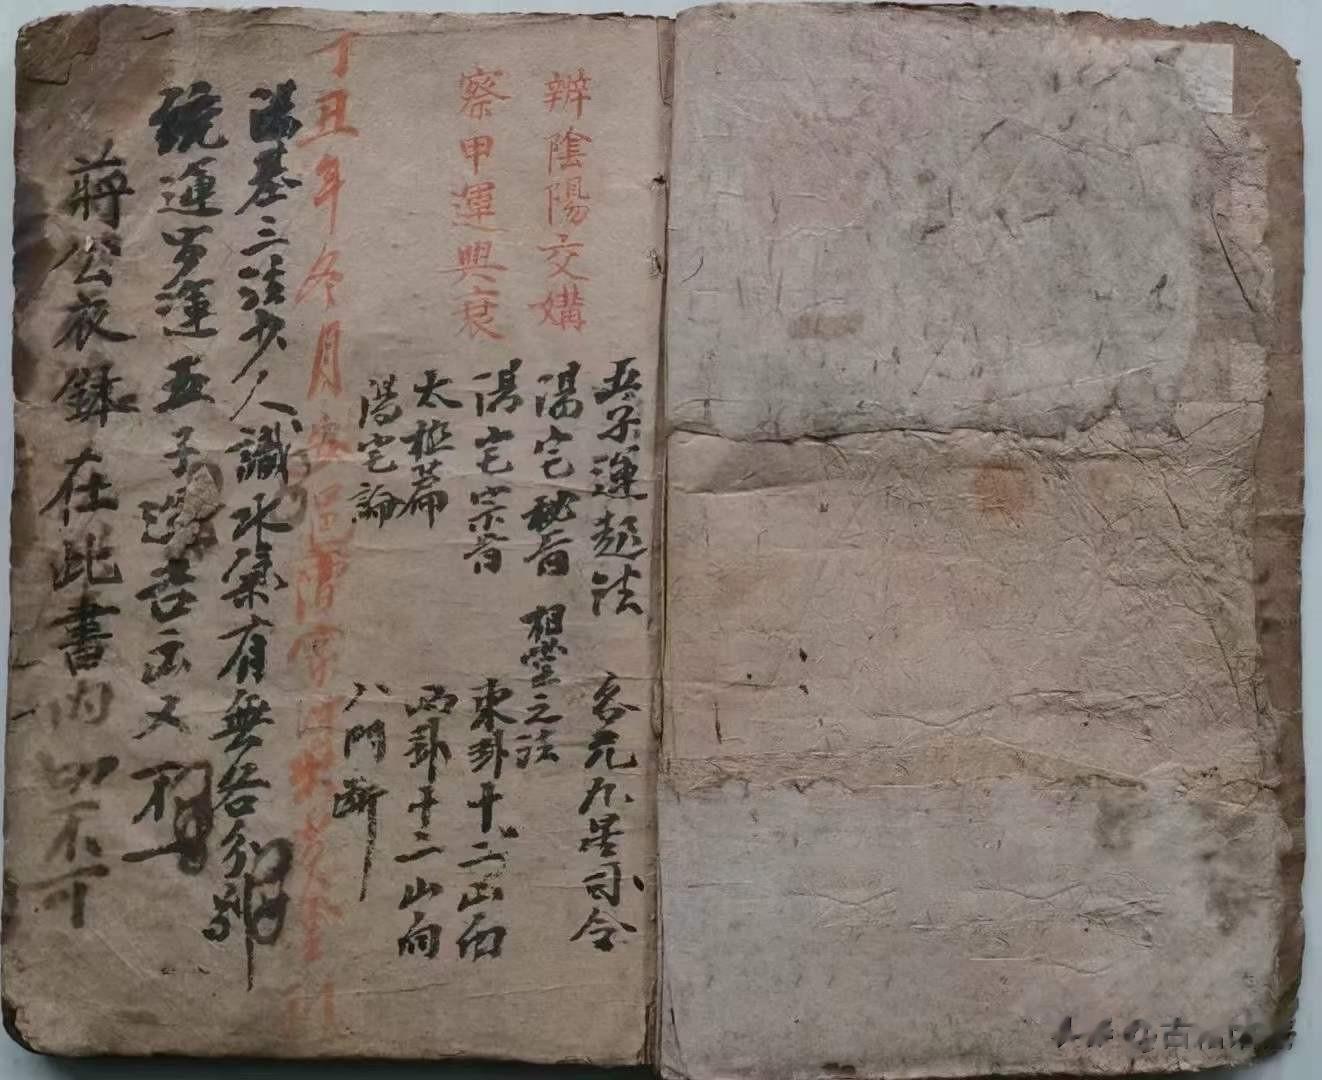 五子運起法
各元九星司令
辦陰陽交媾
陽宅秘旨
相堂之法
察甲運興衰
陽宅宗旨
東卦十二山向
太極篇
西卦十二山向
陽宅論
八門斷
丁丑年冬月邑
陽基三法少人識水黨有無各分別
統運步運五子選吉凶又不一
蔣公衣缽在此書內切不可